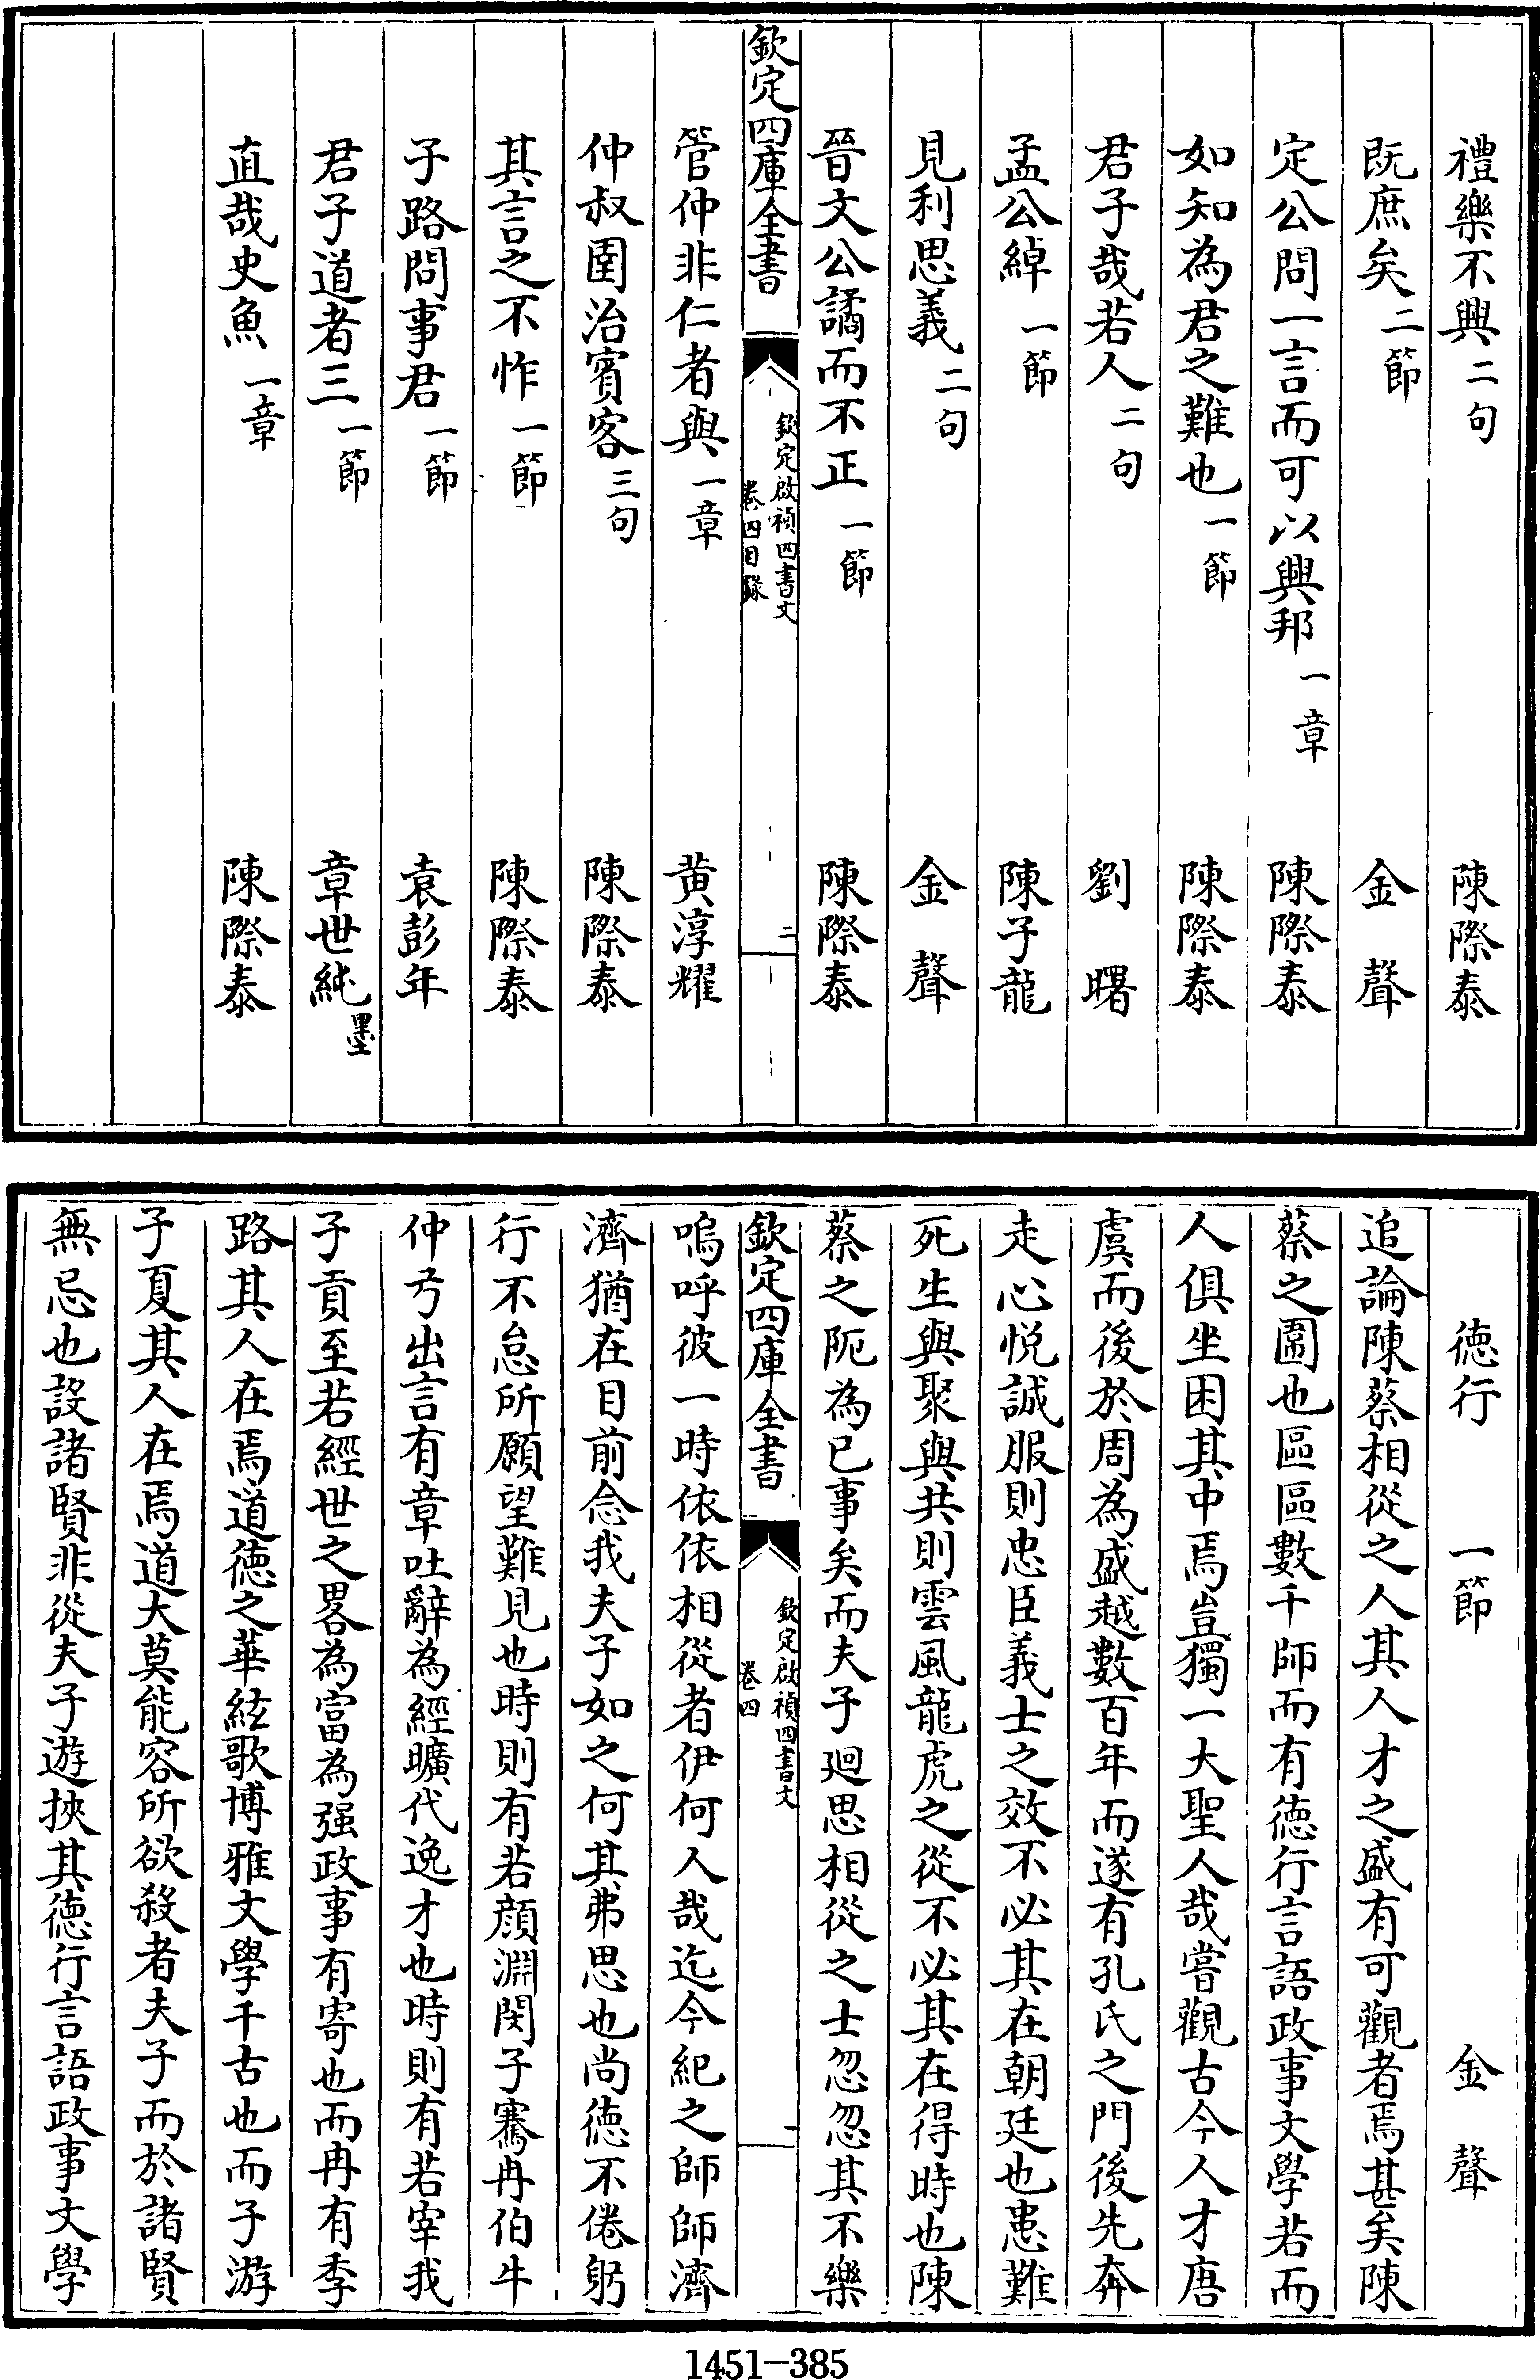 禮樂不興二句 陳際泰
既庶矣二節 金聲
定公問一言而可以興邦一章 陳際泰
如知為君之難也一節 陳際泰
君子哉若人二句 劉曙
孟公綽一節 陳子龍
見利思義二句 金聲
晉文公譎而不正一節 陳際泰
欽定四庫全書 欽定啟禎四書文 卷四目錄 二
管仲非仁者與一章 黃淳耀
仲叔圉治賓客三句 陳際泰
其言之不怍一節 陳際泰
子路問事君一節 袁彭年
君子道者三一節 章世純墨
直哉史魚一章 陳際泰
德行 一節 金聲
追論陳蔡相從之人其人才之盛有可觀者焉甚矣陳
蔡之圍也區區數千師而有德行言語政事文學若而
人俱坐困其中焉豈獨一大聖人哉嘗觀古今人才唐
虞而後於周為盛越數百年而遂有孔氏之門後先奔
走心悅誠服則忠臣義士之效不必其在朝廷也患難
死生與聚與共則雲風龍虎之從不必其在得時也陳
蔡之阨為已事矣而夫子迴思相從之士忽忽其不樂
欽定四庫全書 欽定啟禎四書文 卷四 一
嗚呼彼一時依依相從者伊何人哉迄今紀之師師濟
濟猶在目前念我夫子如之何其弗思也尚德不倦躬
行不怠所願望難見也時則有若顏淵閔子騫冉伯牛
仲弓出言有章吐辭為經曠代逸才也時則有若宰我
子貢至若經世之畧為富為强政事有寄也而冉有季
路其人在焉道德之華絃歌博雅文學千古也而子游
子夏其人在焉道大莫能容所欲殺者夫子而於諸賢
無忌也設諸賢非從夫子遊挾其德行言語政事文學
1451-385